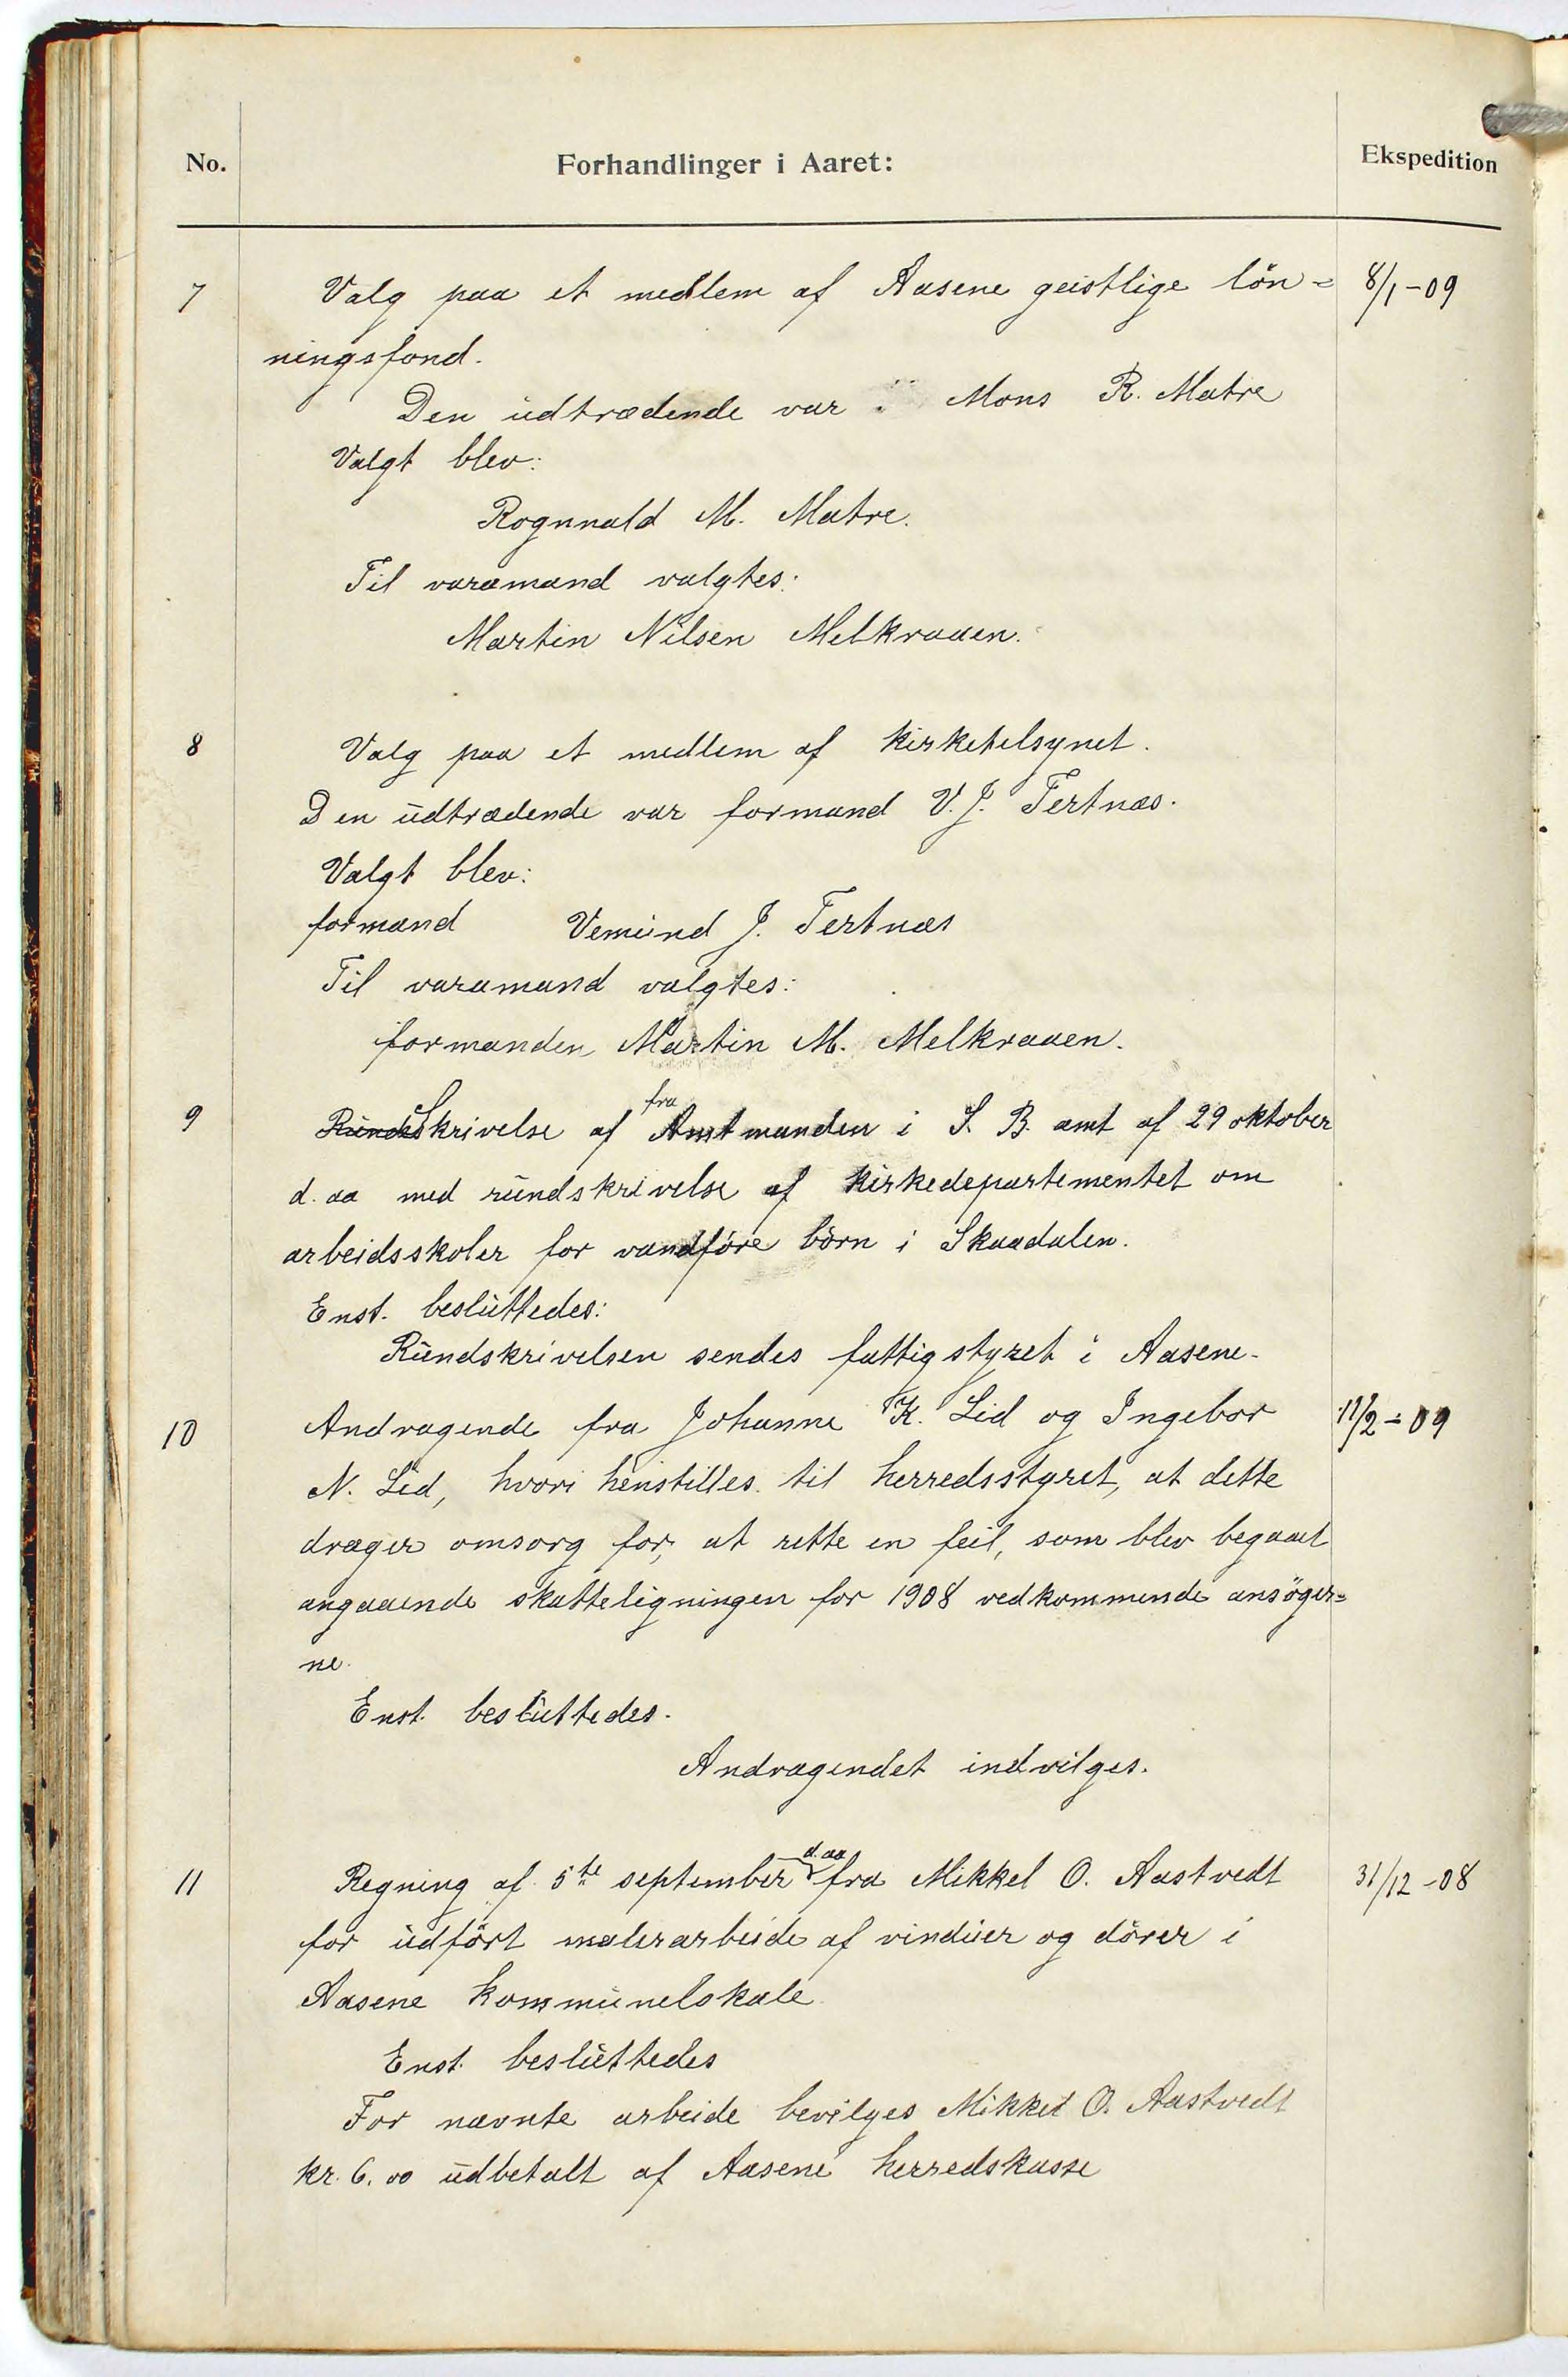 No. Forhandlinger i Aaret: Ekspedition
7 Valg paa et medlem af Aasene geistlige løn= 8/1-09
ningsfond.
Den udtrædende var Mons R. Matre
Valgt blev:
Rognnald M. Matre.
Til varamand valgtes:
Martin Nilsen Melkraaen.
8 Valg paa et medlem af kirketilsynet.
Den udtrædende var formand V. J. Tertnæs.
Valgt blev:
formand Vemund J. Tertnæs
Til varamand valgtes:
formanden Martin M. Melkraaen.
9 Skrivelse af fra Amtmanden i S. B. amt af 29 oktober
d. aa med rundskrivelse af kirkedepartementet om
arbeidsskoler for vandføre børn i Skaadalen.
Enst. besluttedes:
Rundskrivelsen sendes fattigstyret i Aasene.
10 Andragende fra Johanne K. Lid og Ingebor 11/2-09
N. Lid, hvori henstilles til herredsstyret, at dette
drager omsorg for, at rette en feil, som blev begaaet
angaaende skatteligningen for 1908 vedkommende ansøger=
ne.
Enst. besluttedes.
Andragendet indvilges.
11 Regning af 5te september d. aa fra Mikkel O. Aastvedt 31/12-08
for udført malerarbeide af vinduer og dører i
Aasene kommunelokale
Enst. besluttedes
For nævnte arbeide bevilges Mikkel O. Aastvedt
kr. 6.00 udbetalt af Aasene herredskasse